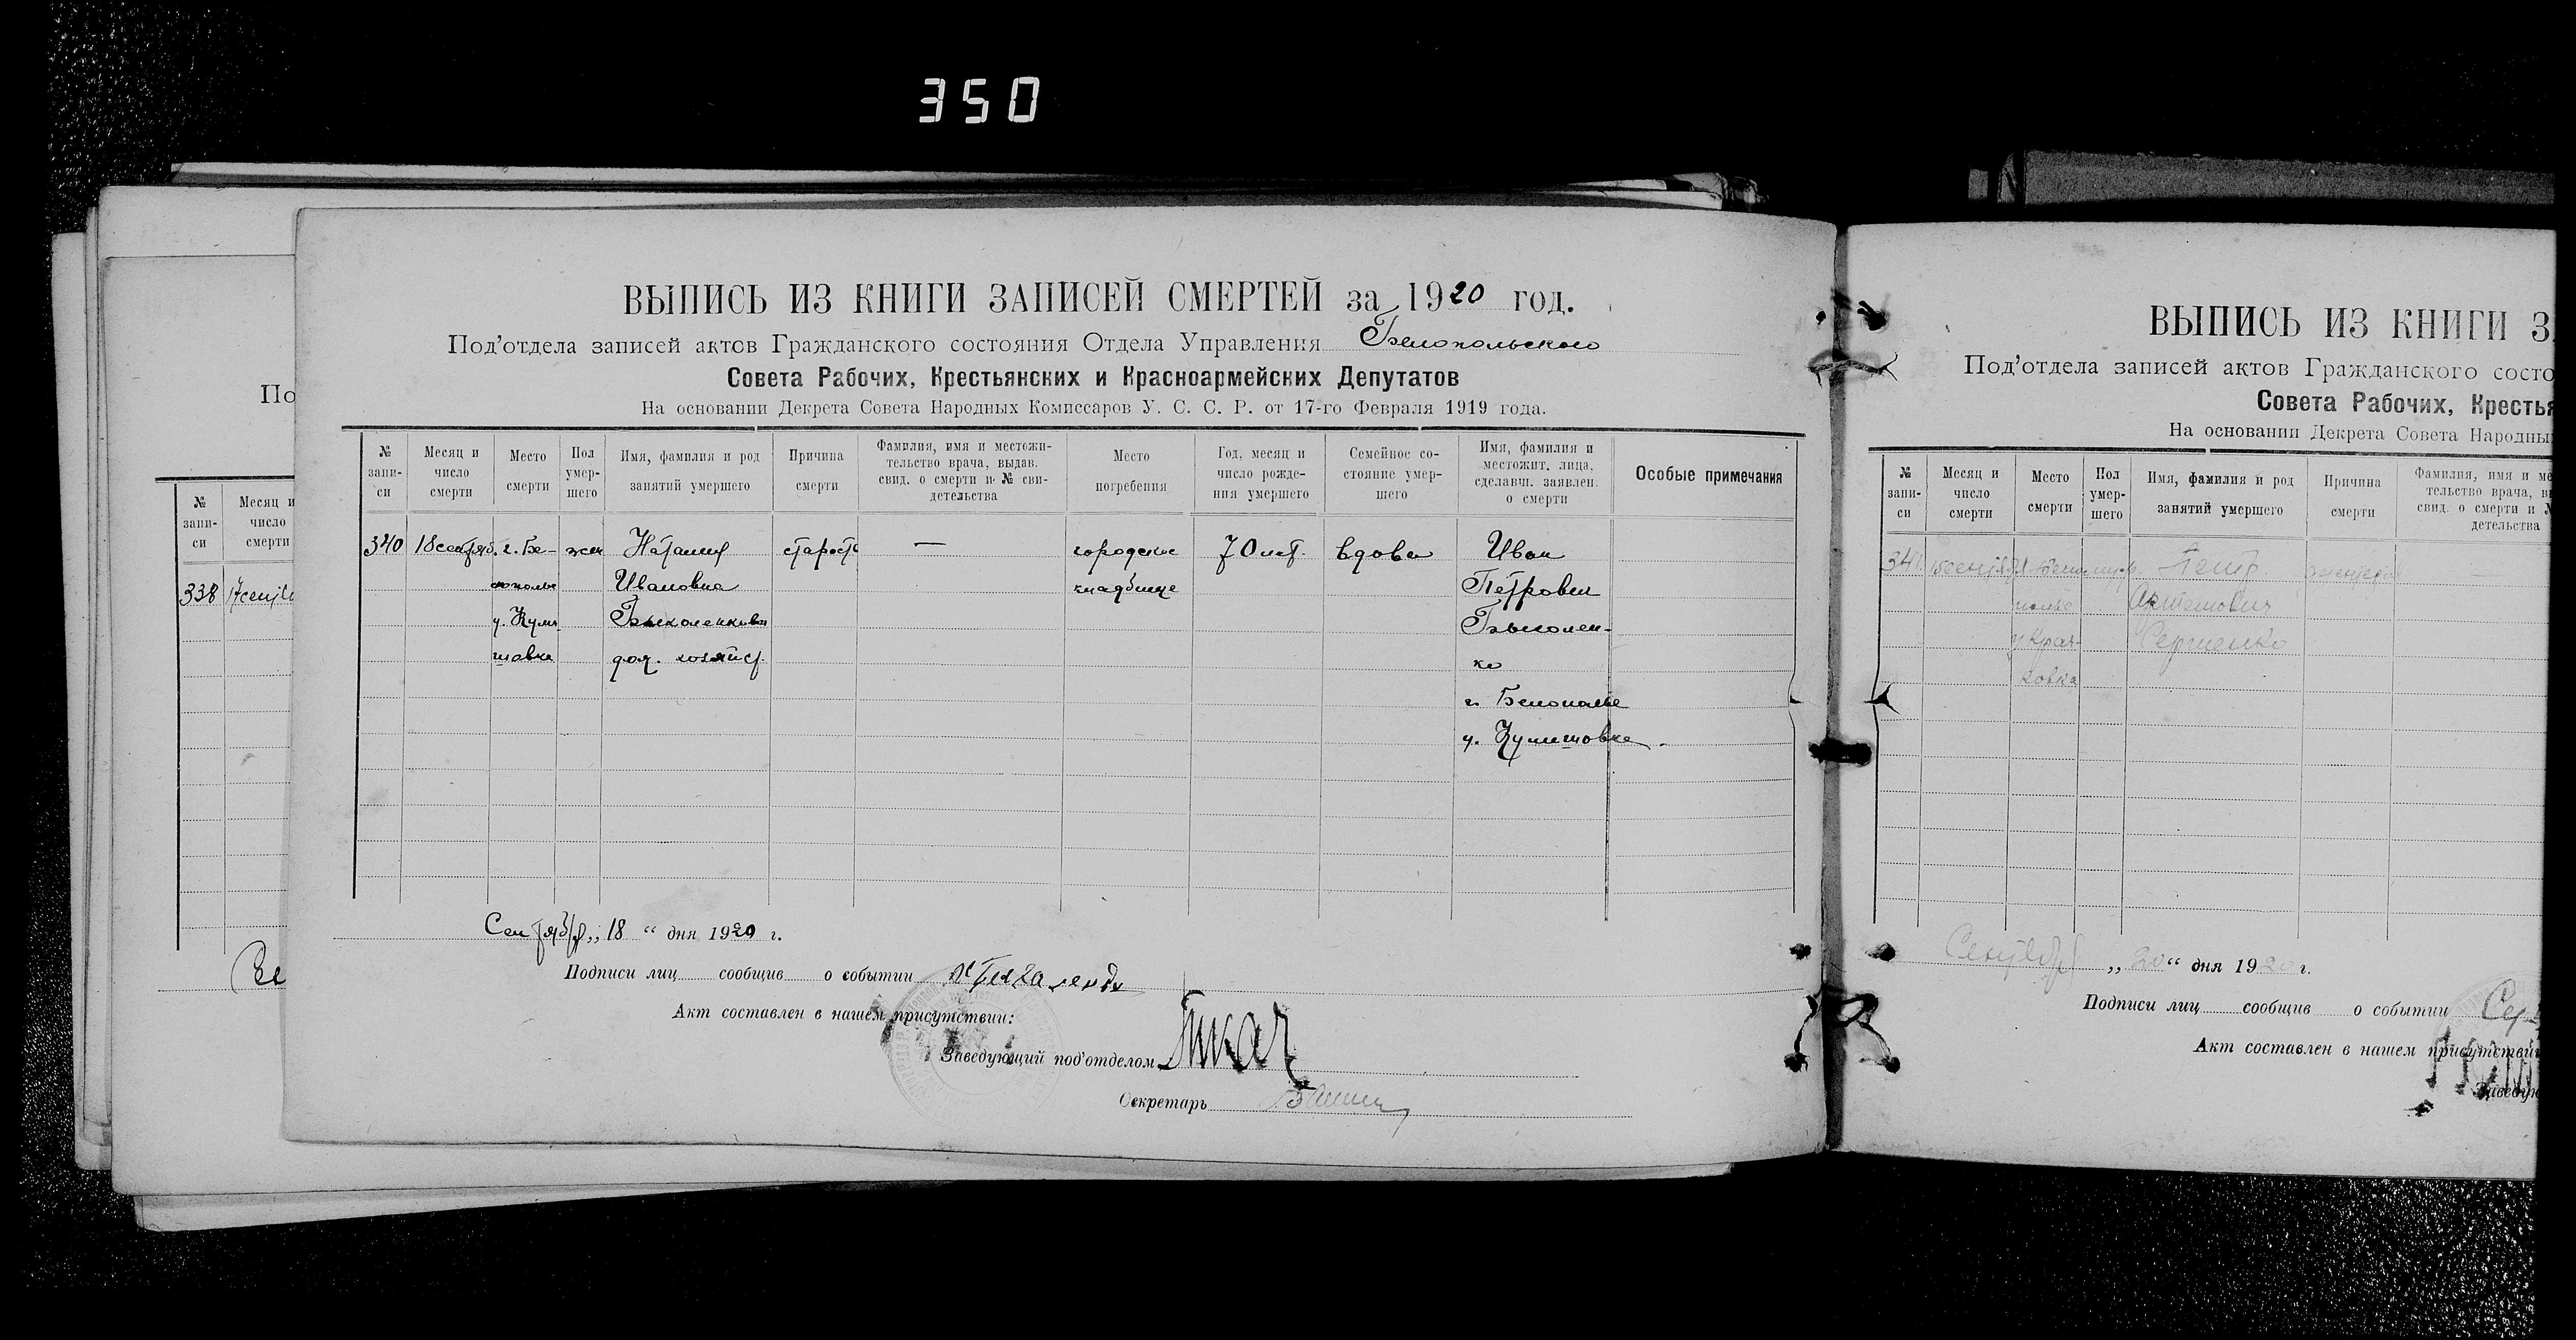 350
ВЫПИСЬ ИЗ КНИГИ ЗАПИСЕЙ СМЕРТЕЙ за 1920 год.
Под'отдела записей актов Гражданского состояния Отдела Управления Белопольского
Совета Рабочих, Крестьянских и Красноармейских Депутатов
На основании Декрета Совета Народных Комиссаров У. С. С. Р. от 17-го Февраля 1919 года.
№ запи-си
Месяц и число смерти
Место смерти
Пол умер-шего
Имя, фамилия и род занятий умершего
Причина смерти
Фамилия, имя и местожи-тельство врача, выдав. свид. о смерти и № сви-детельства
Место погребения
Год, месяц и число рожде-ния умершего
Семейное со-стояние умер-шего
Имя, фамилия и местожит. лица, сделавш. заявлен. о смерти
Особые примечания
340 18 сентяб. г. Бе- жен Наталия старость — городское 70 лет. вдова Иван
лополье Ивановна кладбище Петрович
у. Кули Быколенкова Быколен-
шовка дом. хозяйст. ко
г. Белополье
у. Кулишовка
Сентября „18“ дня 1920 г.
Подписи лиц сообщив о событии
Акт составлен в нашем присутствии:
Заведующий под'отделом Ткач
Секретарь
По
№ запи-си
Месяц и число смерти
338 17 сентя
Се
ВЫПИСЬ ИЗ КНИГИ З
Под'отдела записей актов Гражданского состо
Совета Рабочих, Крестья
На основании Декрета Совета Народны
№ запи-си
Месяц и число смерти
Место смерти
Пол умер-шего
Имя, фамилия и род занятий умершего
Причина смерти
Фамилия, имя и ме
тельство врача, в
свид. о смерти и №
детельства
341 Петр —
полье
Сергиенко
ховка
Сентября „20“ дня 1920 г.
Подписи лиц сообщив о событии Сер
Акт составлен в нашем присутствии
Заведую